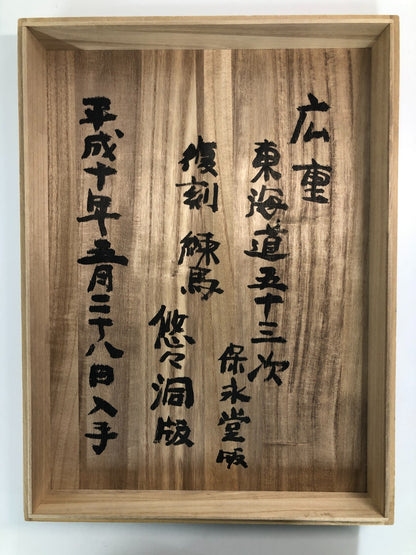 広重
東海道五十三次
保永堂版
復刻 練馬
悠々洞版
平成十年五月二十八日入手